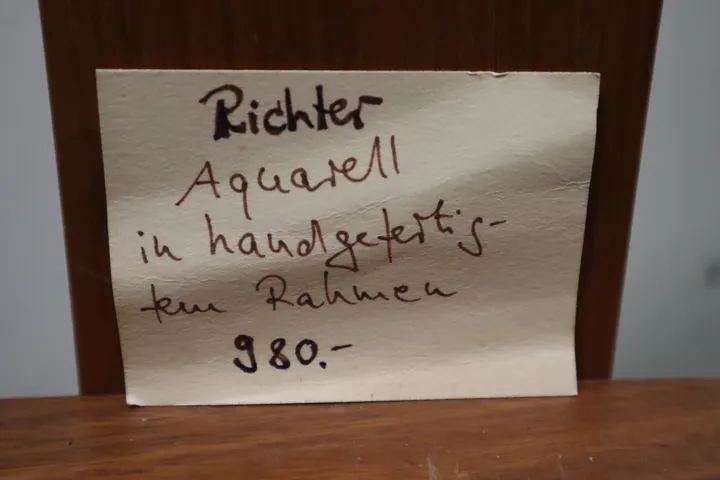 Richter
Aquarell
in handgefertig-
tem Rahmen
980.-